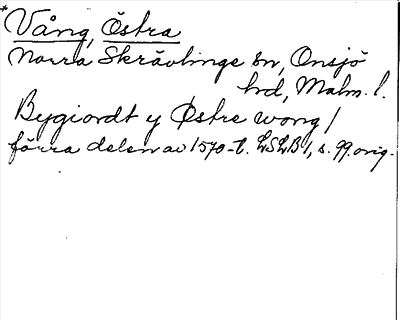 *Vång, Östra
Norra Skrävlinge sn, Onsjö
hrd, Malm. l.
Bygiordt y Østre wong /
förra delen av 1570-t. LSLB 1, s. 99. orig.